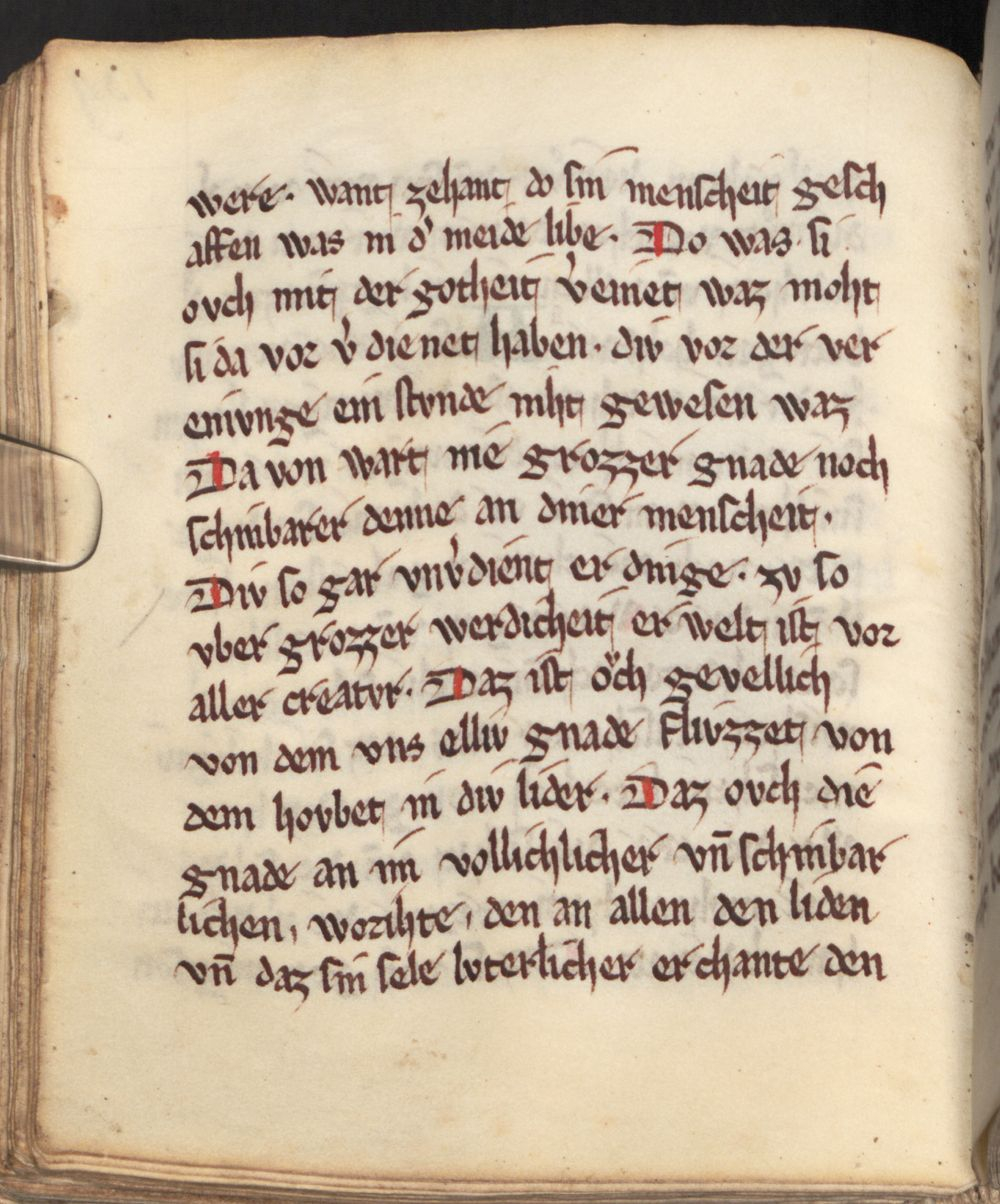 were. want zehant do sin menscheit gesch
affen was in d᾽ meide libe. Do was si
ovch mit der gotheit v᾽einet waz moht
si da vor v᾽dienet haben. div vor der ver
einvnge ein stvnde niht gewesen waz
Da von wart nie grozzer gnade noch
schinbarer denne an diner menscheit.
Div so gar vnv᾽dient er dinge. zv so
vber grozzer werdicheit er welt ist vor
aller creatvr. Daz ist oͮch gevellich
von dem vns elliv gnade flivzzet von
dem hovbet in div lider. Daz ovch die
gnade an im vollichlicher vn̄ schinbar
lichen, worihte, den an allen den liden
vn̄ daz sin sele lvterlicher erchante den